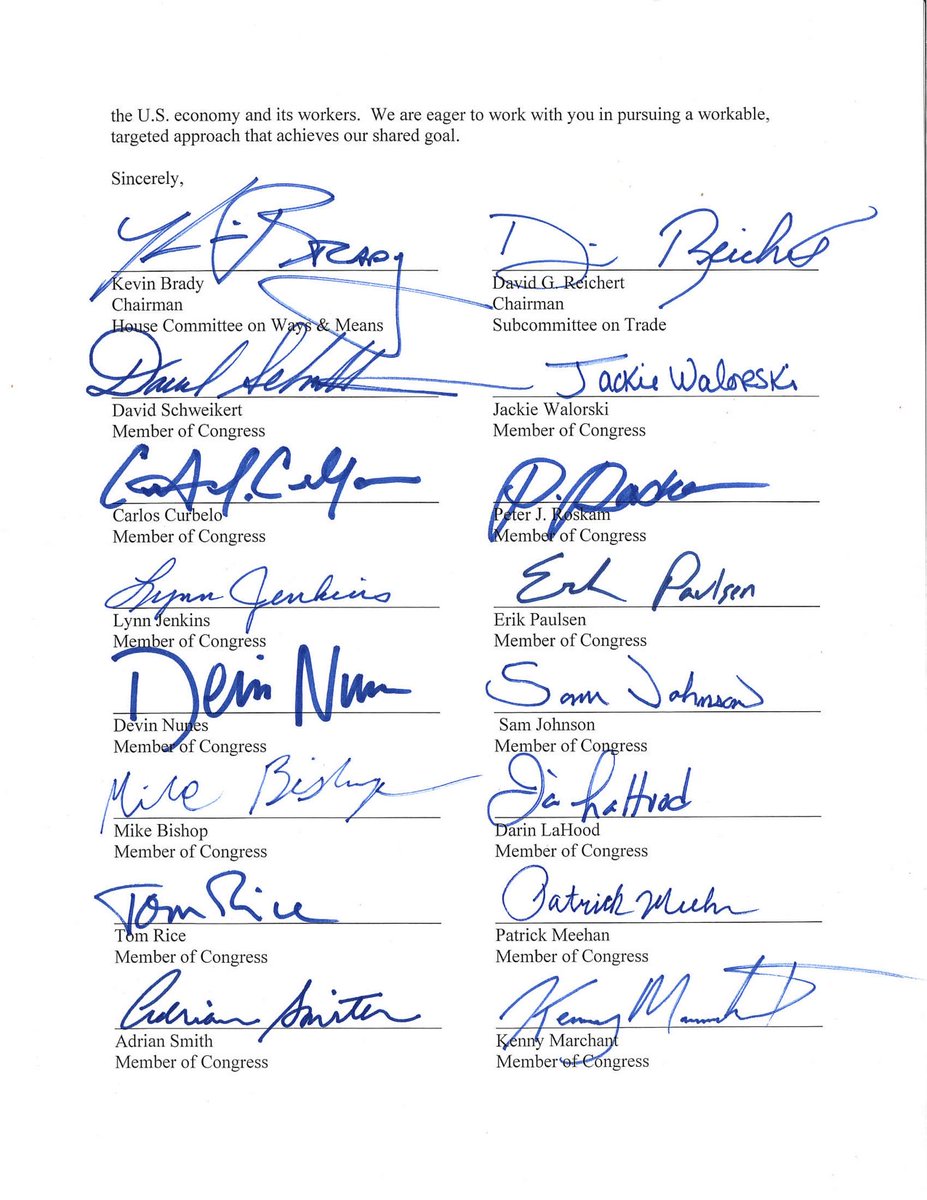 the U.S. economy and its workers. We are eager to work with you in pursuing a workable,
targeted approach that achieves our shared goal.
Sincerely,
Kevin Brady
David G. Reichert
Chairman
Chairman
House Committee on Ways & Means
Subcommittee on Trade
Jackie Walorski
David Schweikert
Jackie Walorski
Member of Congress
Member of Congress
Carlos Curbelo
Peter J. Roskam
Member of Congress
Member of Congress
Lynn Jenkins
Erik Paulsen
Lynn Jenkins
Erik Paulsen
Member of Congress
Member of Congress
Devin Nunes
Sam Johnson
Sam Johnson
Member of Congress
Member of Congress
Mike Bishop
Mike Bishop
Darin LaHood
Member of Congress
Member of Congress
Tom Rice
Patrick
Tom Rice
Patrick Meehan
Member of Congress
Member of Congress
Adrian
Kenny
Adrian Smith
Kenny Marchant
Member of Congress
Member of Congress